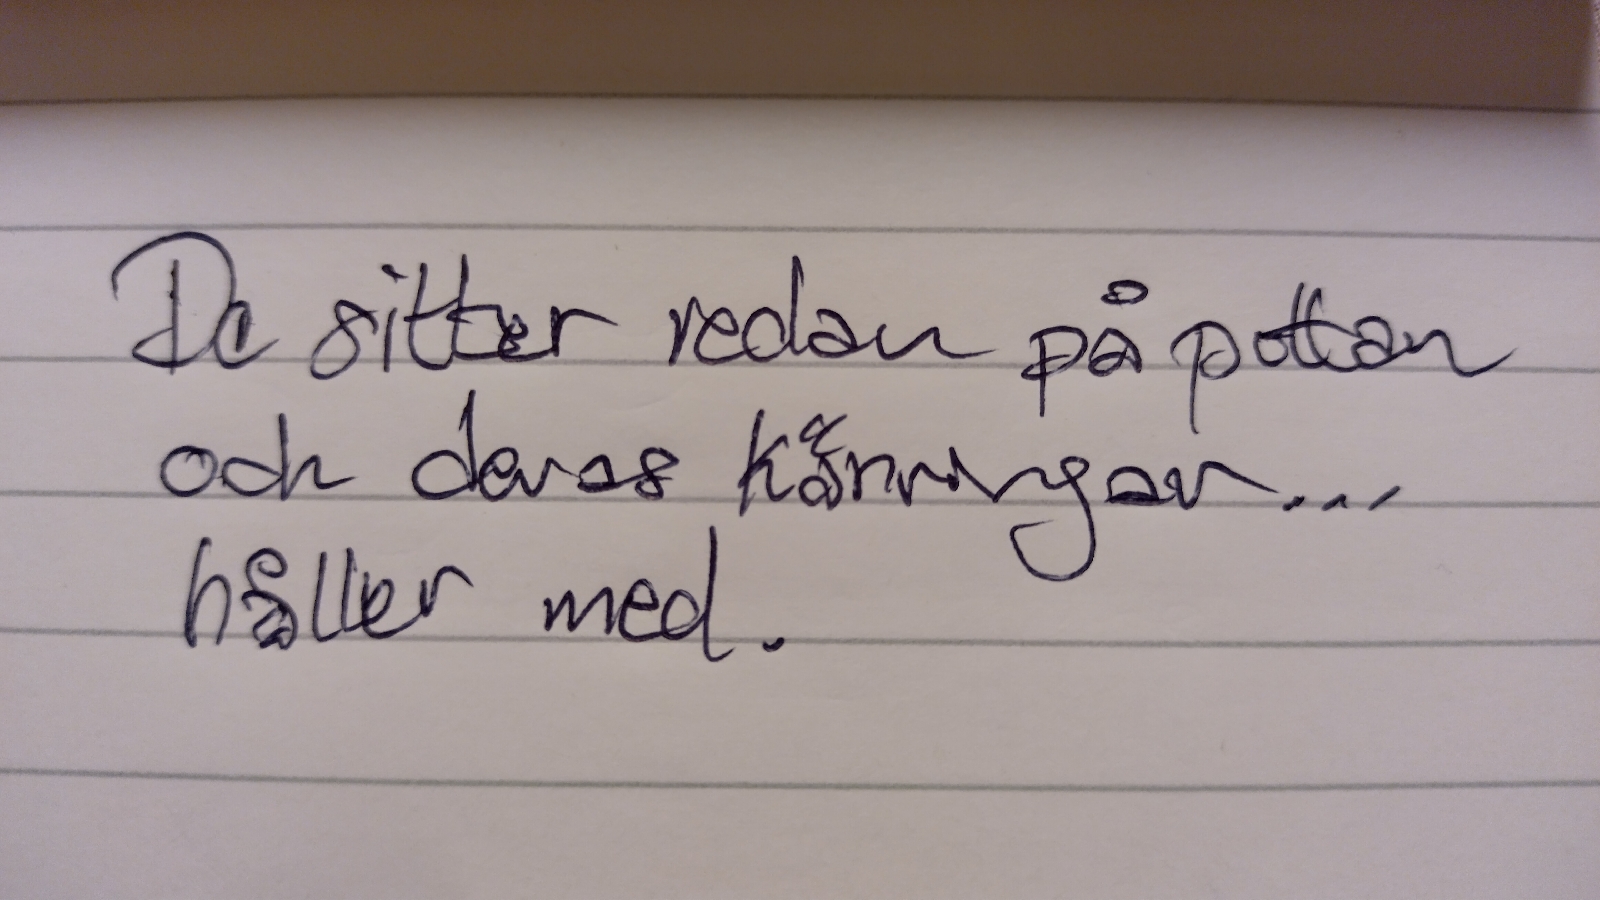 De sitter redan på pottan
och deras kärringar...
håller med.